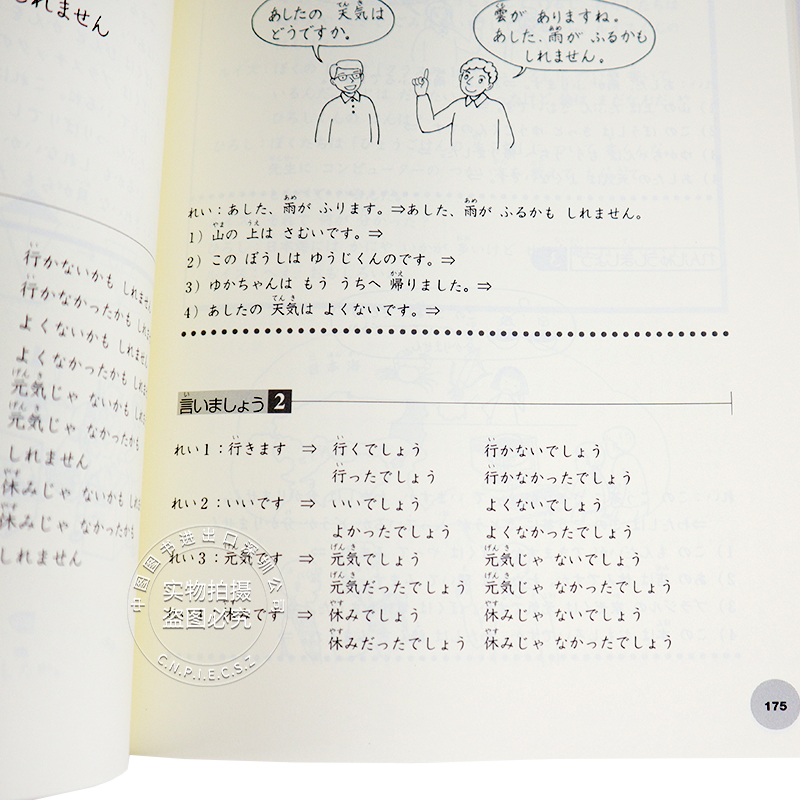 しれません
行かないかも しれません
行かなかったかも しれ
よくないかも しれません
よくなかったかも しれ
元気じゃ ないかも しれ
元気じゃ なかったかも
しれません
休みじゃ ないかも しれ
休みじゃ なかったかも
しれません
あしたの 天気は
どうですか。
雲が ありますね。
あした、雨が ふるかも
しれません。
れい：あした、雨が ふります。⇒あした、雨が ふるかも しれません。
1）山の 上は さむいです。⇒
2）この ぼうしは ゆうじくんのです。⇒
3）ゆかちゃんは もう うちへ 帰りました。⇒
4）あしたの 天気は よくないです。⇒
言いましょう 2
れい1：行きます ⇒ 行くでしょう 行かないでしょう
行ったでしょう 行かなかったでしょう
れい2：いいです ⇒ いいでしょう よくないでしょう
よかったでしょう よくなかったでしょう
れい3：元気です ⇒ 元気でしょう 元気じゃ ないでしょう
元気だったでしょう 元気じゃ なかったでしょう
れい4：休みです ⇒ 休みでしょう 休みじゃ ないでしょう
休みだったでしょう 休みじゃ なかったでしょう
中国图书进出口深圳公司
实物拍摄
盗图必究
C.N.P.I.E.C.S.Z
175